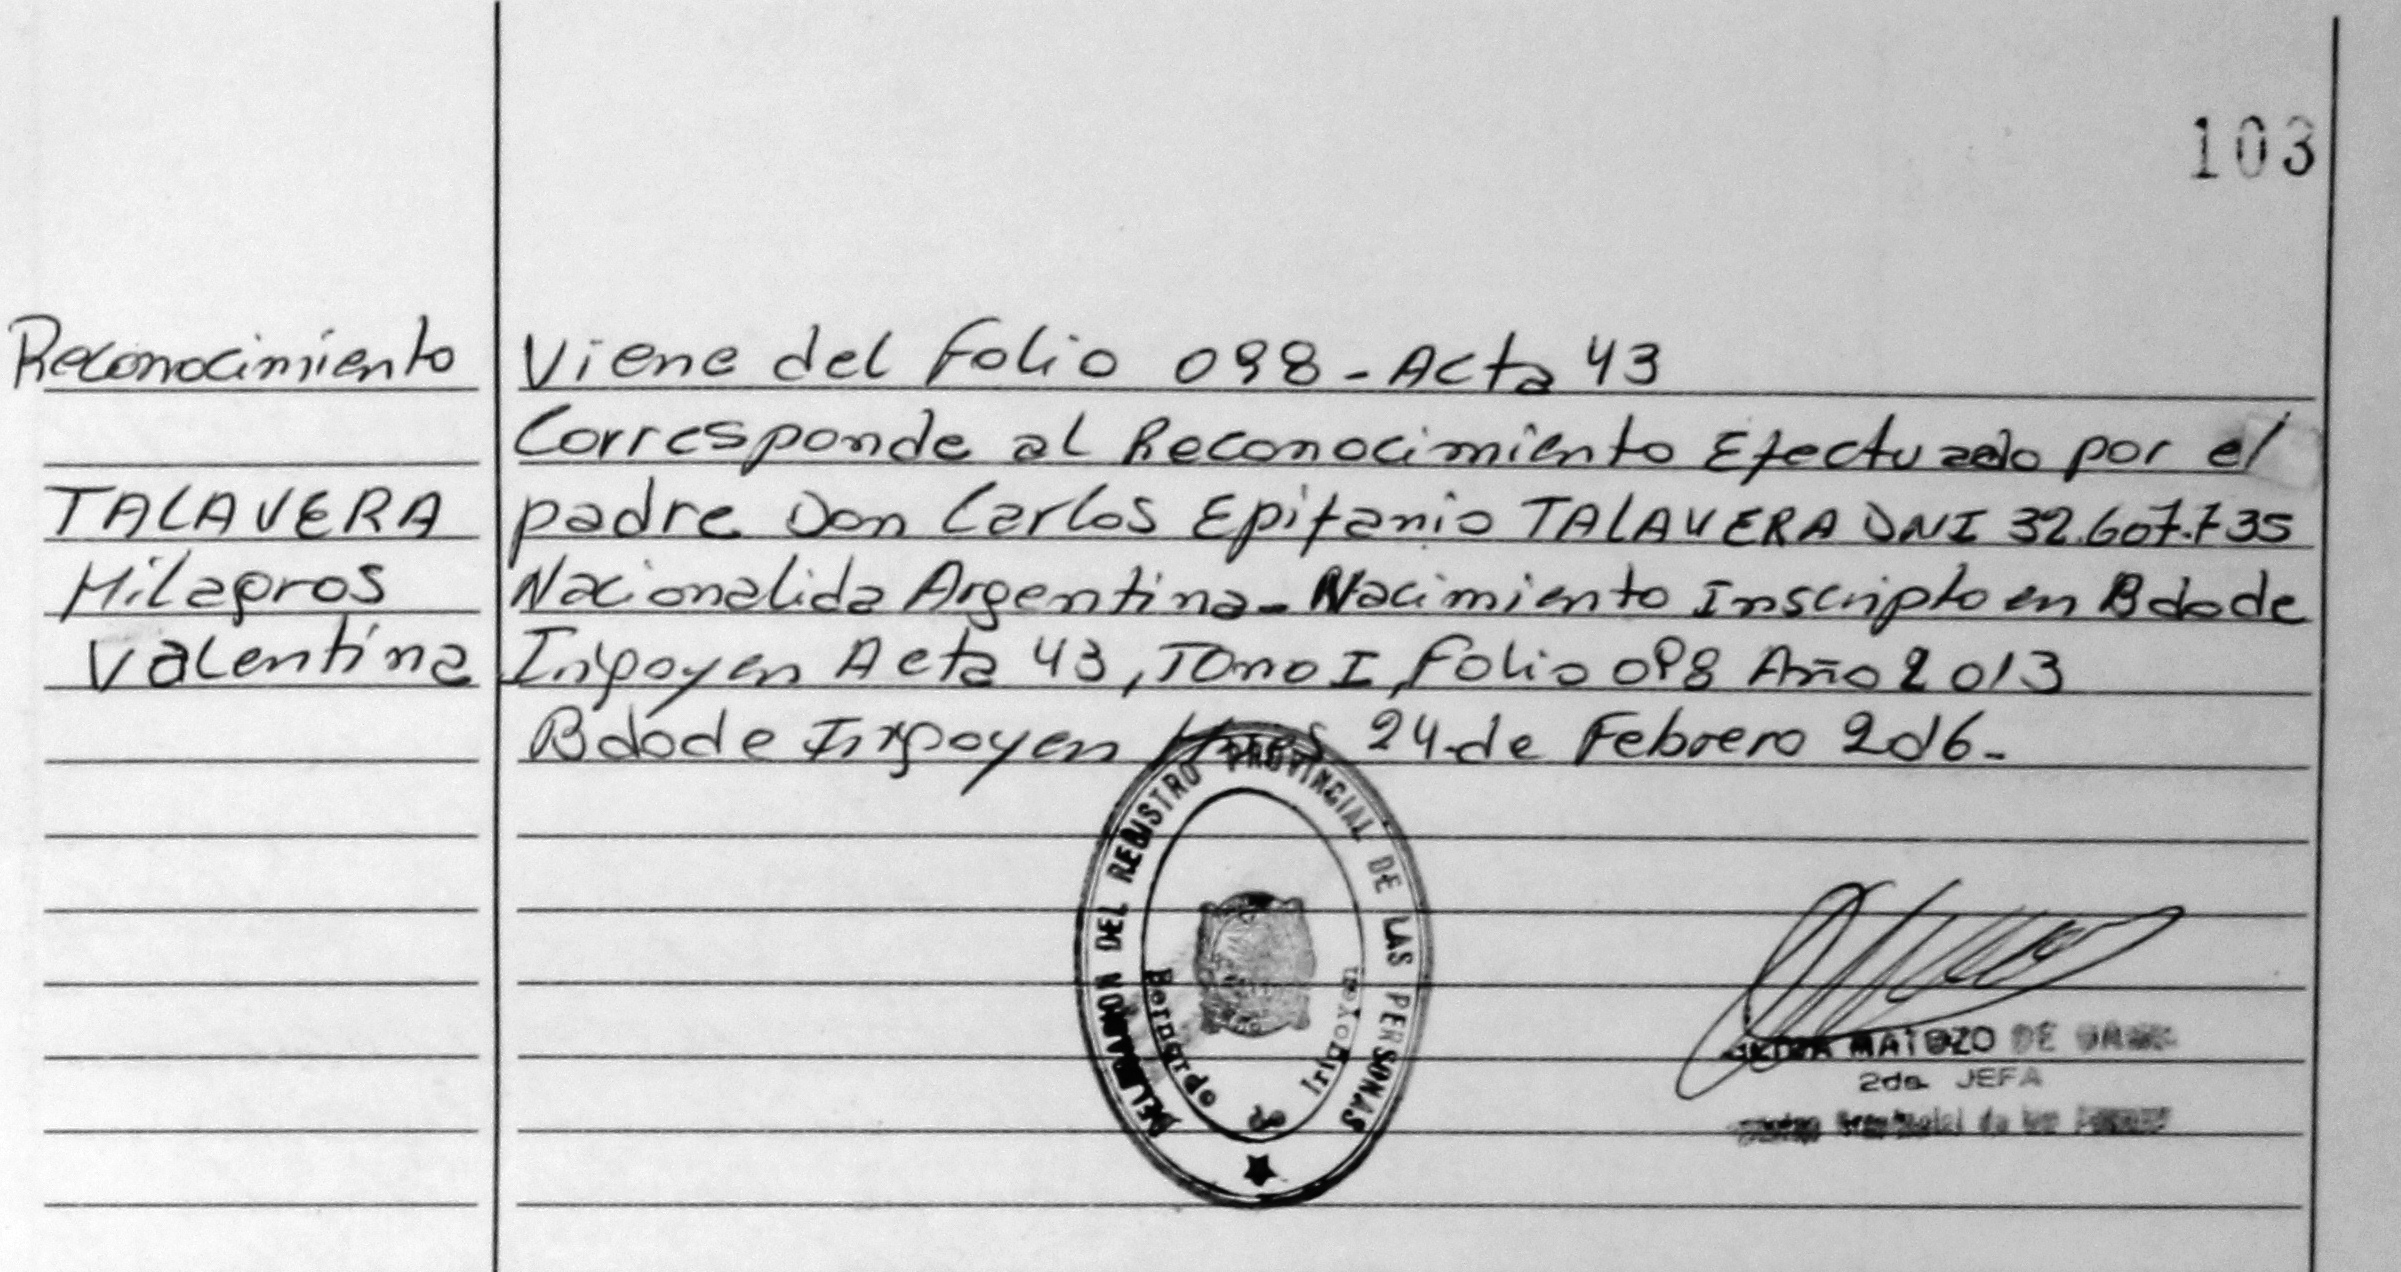 103
Reconocimiento
TALAVERA
Milagros
Valentina
Viene del Folio 098 - Acta 43
Corresponde al Reconocimiento Efectuado por el
padre Don Carlos Epifanio TALAVERA DNI 32.607.735
Nacionalida Argentina - Nacimiento Inscripto en Bdo de
Irigoyen Acta 43, Tomo I, Folio 098 Año 2013
Bdo de Irigoyen 24 de Febrero 2016-
DELEGACION DEL REGISTRO PROVINCIAL DE LAS PERSONAS
Bernardo de Irigoyen
MATOZO DE
2da. JEFA